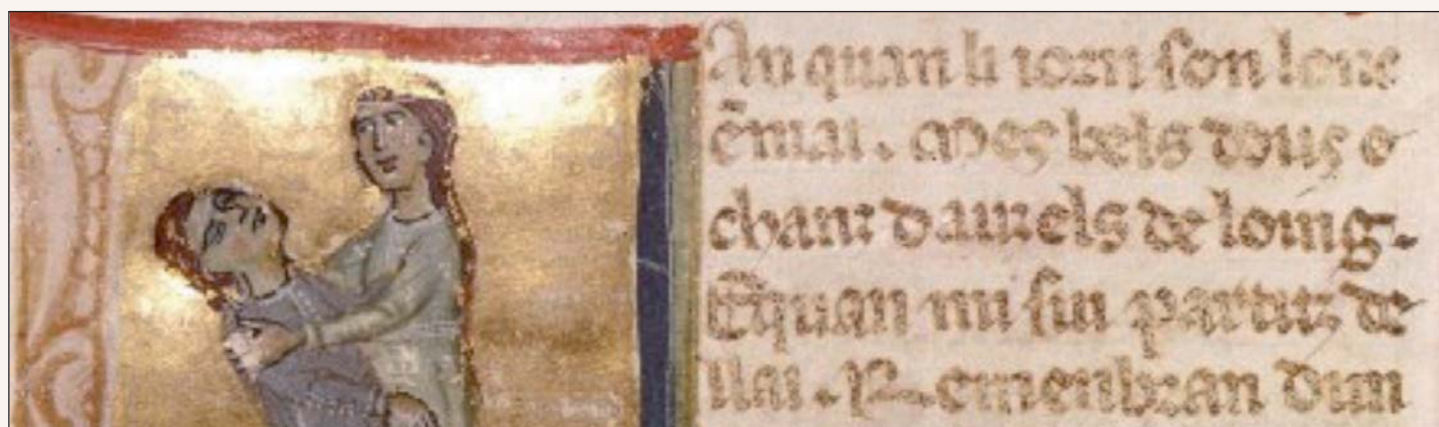 An quan li iorn son lonc
ē mai. Mes bels dous e
chant dauzels de loing.
E quan mi sui partitz de
llai. Remenbran dun